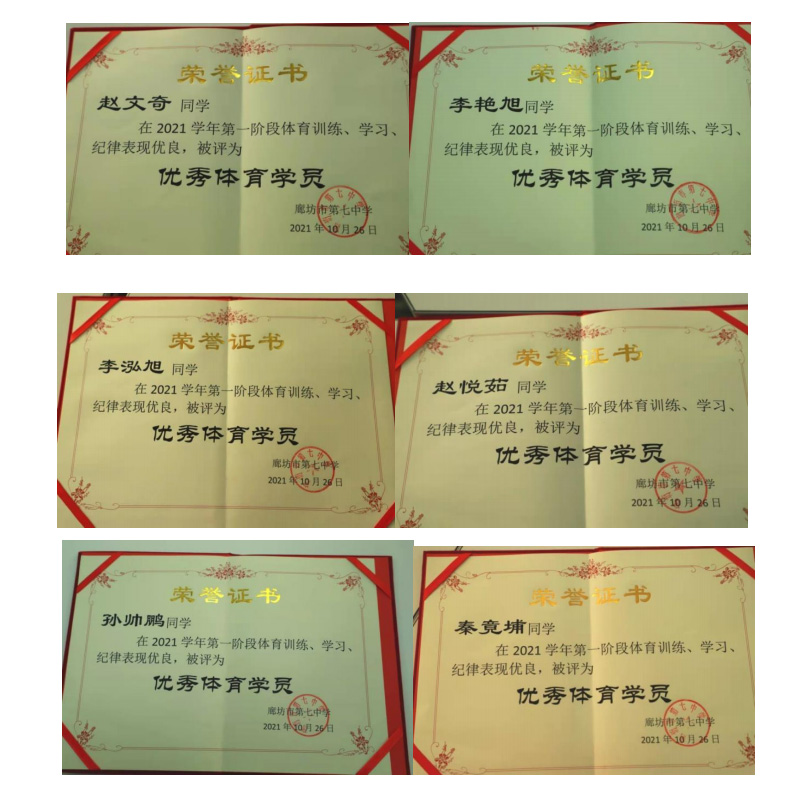 荣誉证书
赵文奇 同学
在 2021 学年第一阶段体育训练、学习、
纪律表现优良，被评为
优秀体育学员
廊坊市第七中学
2021 年 10 月 26 日
荣誉证书
李艳旭同学
在 2021 学年第一阶段体育训练、学习、
纪律表现优良，被评为
优秀体育学员
廊坊市第七中学
2021 年 10 月 26 日
荣誉证书
李泓旭 同学
在 2021 学年第一阶段体育训练、学习、
纪律表现优良，被评为
优秀体育学员
廊坊市第七中学
2021 年 10 月 26 日
荣誉证书
赵悦茹 同学
在 2021 学年第一阶段体育训练、学习、
纪律表现优良，被评为
优秀体育学员
廊坊市第七中学
2021 年 10 月 26 日
荣誉证书
孙帅鹏同学
在 2021 学年第一阶段体育训练、学习、
纪律表现优良，被评为
优秀体育学员
廊坊市第七中学
2021 年 10 月 26 日
荣誉证书
秦竟埔同学
在 2021 学年第一阶段体育训练、学习、
纪律表现优良，被评为
优秀体育学员
廊坊市第七中学
2021 年 10 月 26 日